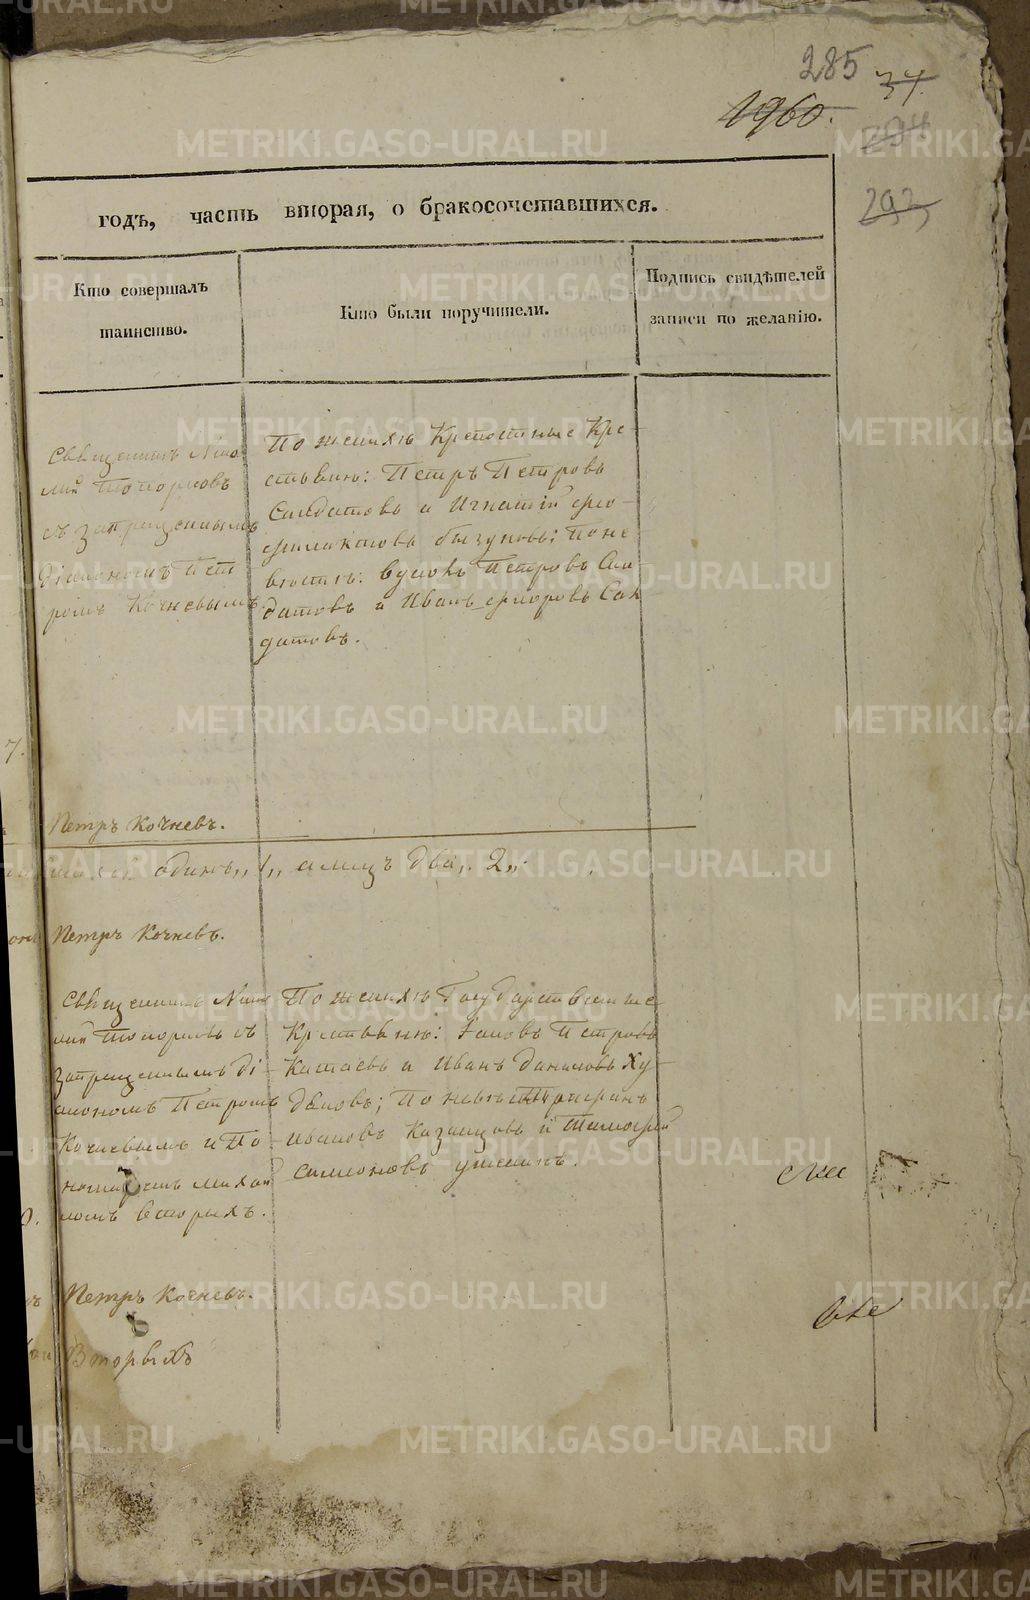 285
34
1960.
294
292
годъ, часть вторая, о бракосочетавшихся.
Кто совершалъ
таинство.
Кто были поручители.
Подпись свидѣтелей
записи по желанію.
Священникъ
лий Топорковъ
съ запрещеннымъ
Діакономъ Пет
ромъ Кочневымъ
По женихѣ Крепостные Кре-
стьяни: Петръ Петровъ
Салдатовъ и Игнатій
по не
вестѣ: Петровъ Сал
датовъ и Иванъ Сал
датовъ.
7.
Петръ Кочневъ.
одинъ,, 1,, а лицъ два,, 2,,
Петръ Кочневъ.
Священникъ
лий Топорковъ съ
запрещеннымъ Ді-
акономъ Петромъ
Кочневымъ и По-
номаремъ Михаи
ломъ Вторыхъ.
По женихѣ Государственные
Крестьяни: Іаковъ Петровъ
Катаевъ и Иванъ Даниловъ Ху-
дяковъ; По невѣстѣ
Ивановъ Казанцовъ и Тимофей
Симоновъ
Петръ Кочневъ.
Вторыхъ
METRIKI.GASO-URAL.RU